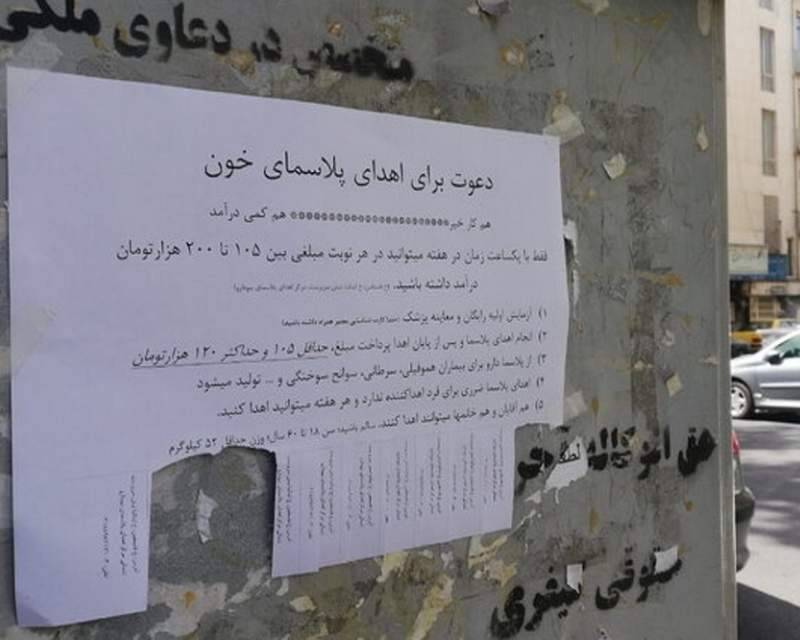 متخصص در دعاوی ملکی
دعوت برای اهدای پلاسمای خون
هم کار خیر************************هم کمی درآمد
فقط با یکساعت زمان در هفته میتوانید در هر نوبت مبلغی بین ۱۰۵ تا ۲۰۰ هزارتومان
درآمد داشته باشید.
۱) آزمایش اولیه رایگان و معاینه پزشک (حتما کارت شناسایی معتبر همراه داشته باشید)
۲) انجام اهدای پلاسما و پس از پایان اهدا پرداخت مبلغ، حداقل ۱۰۵ و حداکثر ۱۲۰ هزارتومان
۳) از پلاسما دارو برای بیماران هموفیلی، سرطانی، سوانح سوختگی و ... تولید میشود
۴) اهدای پلاسما ضرری برای فرد اهداکننده ندارد و هر هفته میتوانید اهدا کنید.
۵) هم آقایان و هم خانمها میتوانند اهدا کنند. سالم باشید؛ سن ۱۸ تا ۶۰ سال؛ وزن حداقل ۵۲ کیلوگرم
حق الوکاله
لطفا
حقوقی کیفری